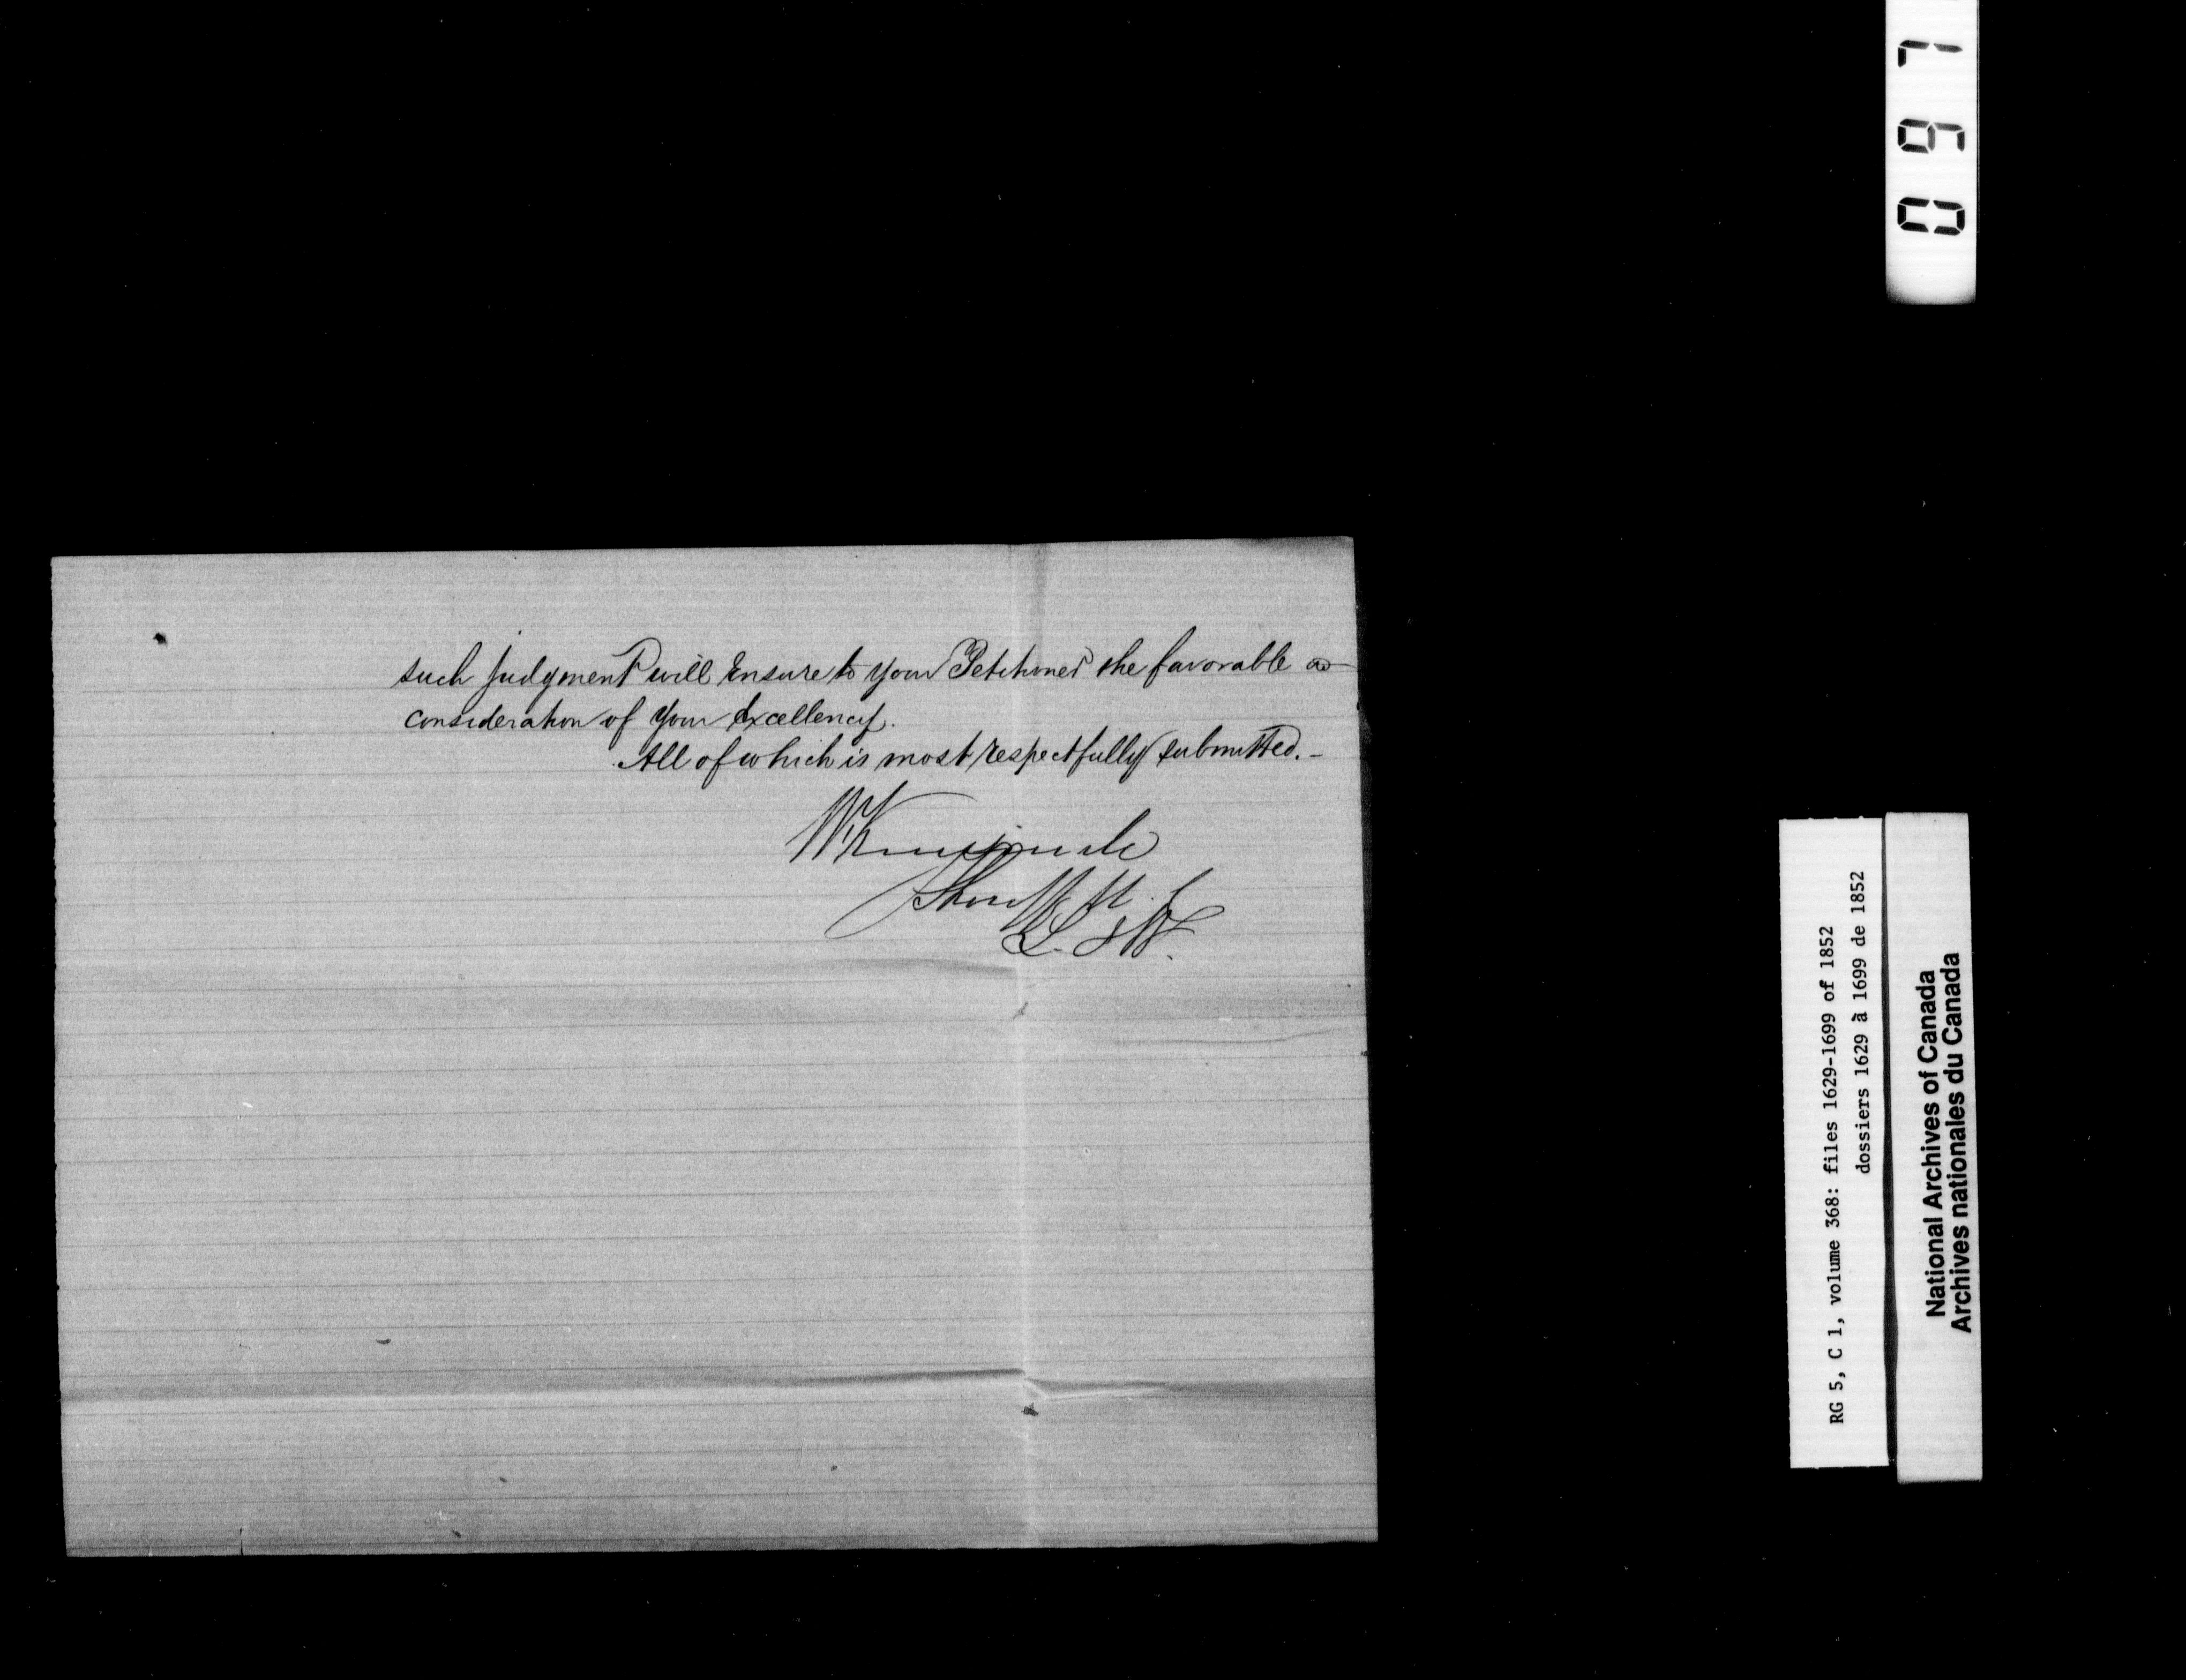 such judgment will Ensure to your Petitioner the favorable
consideration of Your Excellency.
All of which is most respectfully submitted.-
Sheriff
097
RG 5, C 1, volume 368: files 1629-1699 of 1852
dossiers 1629 à 1699 de 1852
National Archives of Canada
Archives nationales du Canada